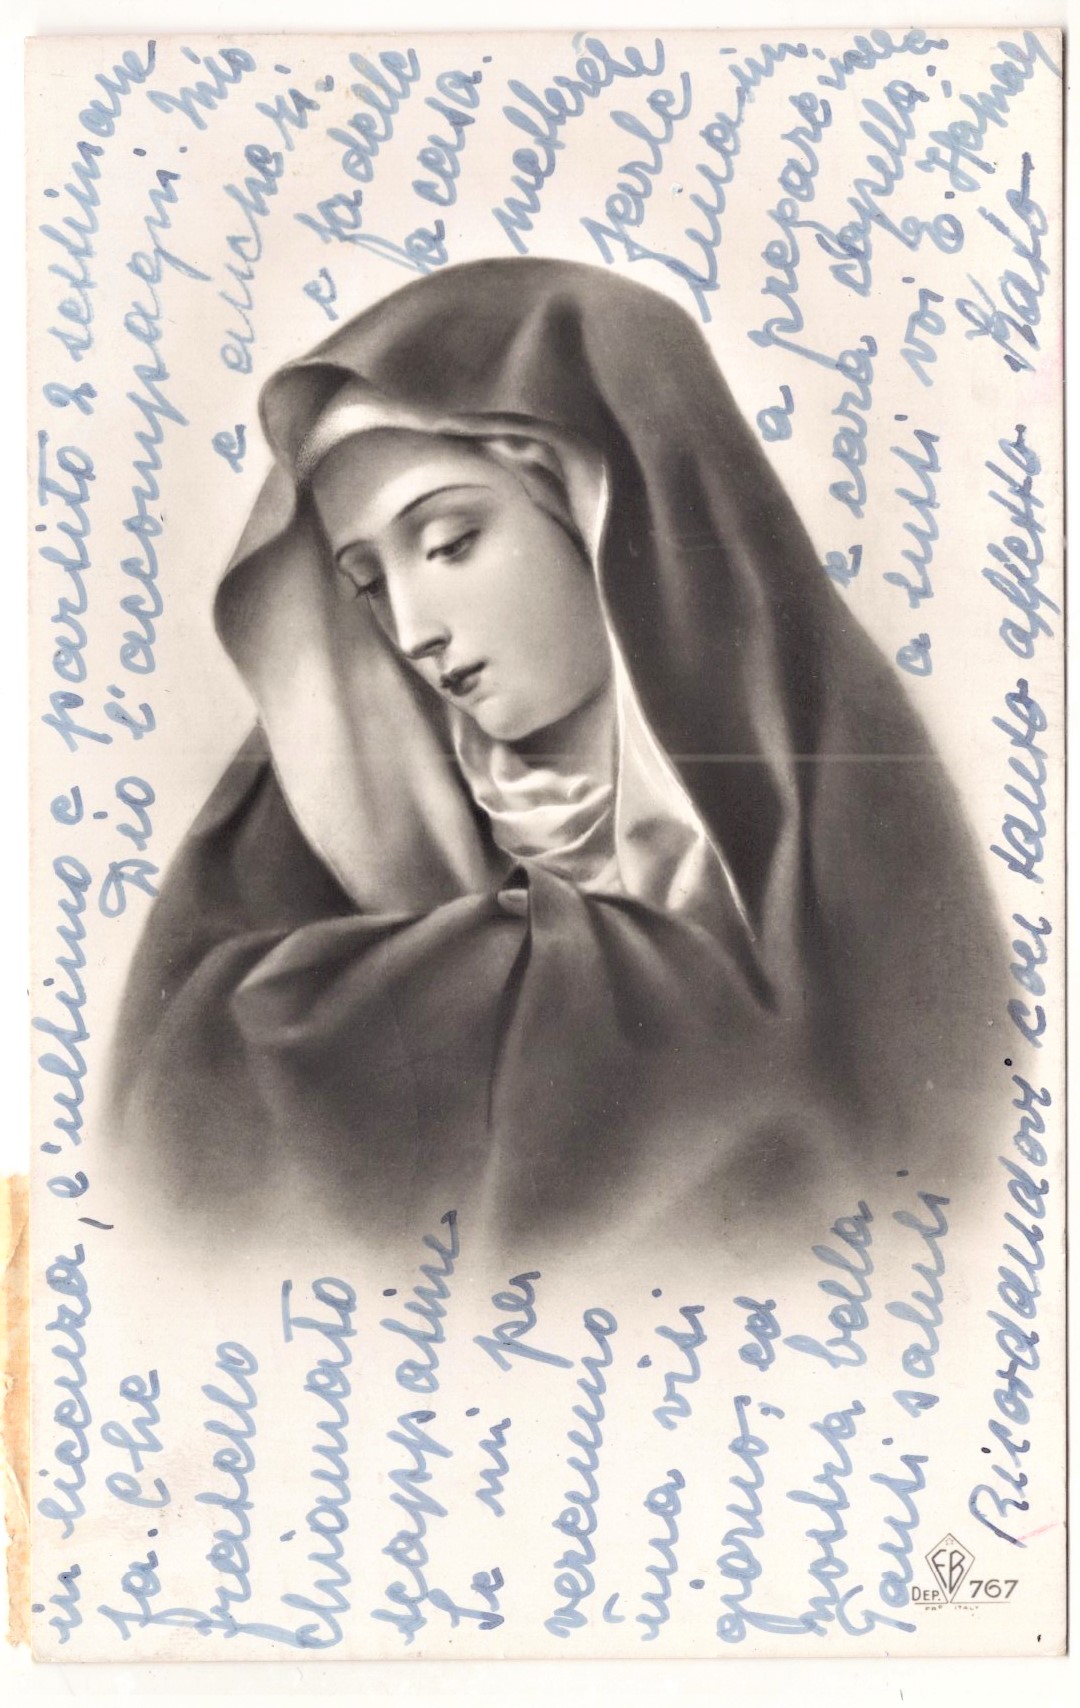 in licenza, l'ultimo è partito 2 settimane
fa. Che Dio l'accompagni. Mio
fratello è anche ri-
chiamato e fa delle
scappatine a casa.
Se mi permetterete
verremo per farle
una visitina in
giorno, ed a pregare nella
nostra bella e cara capella.
Tanti saluti a tutti voi
Ricordandovi con tanto affetto
DEP. FB 767
ITALY